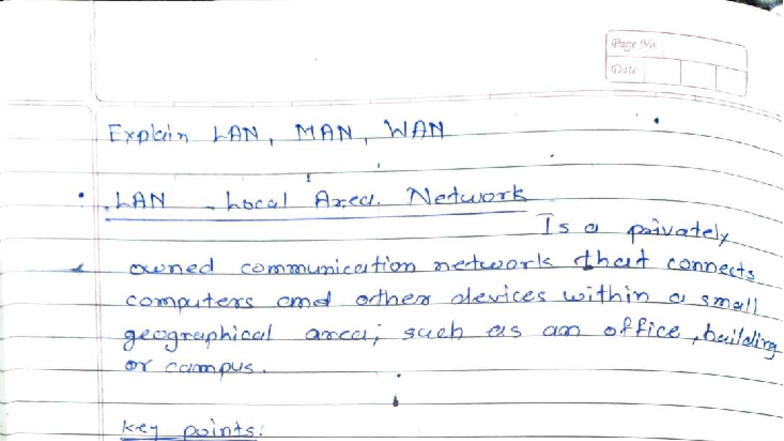 Page No.
Date
Explain LAN, MAN, WAN
LAN - Local Area Network
Is a privately
owned communication network that connects
computers and other devices within a small
geographical area; such as an office, building
or campus.
key points: